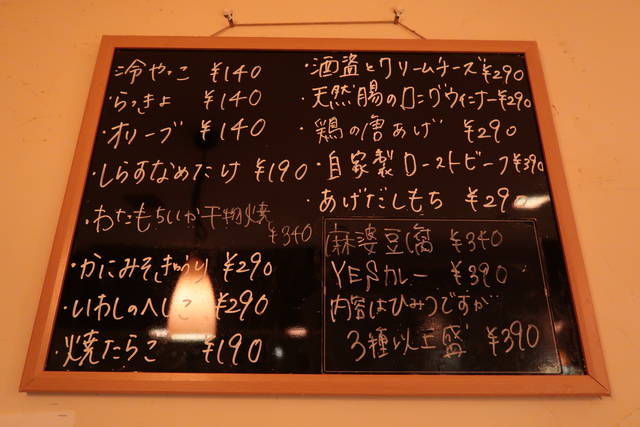 ・冷やっこ ¥140
・らっきょ ¥140
・オリーブ ¥140
・しらすなめたけ ¥190
・わたもちいか干物焼
¥340
・かにみそきゅうり ¥290
・いわしのへしこ ¥290
・焼たらこ ¥190
・酒盗とクリームチーズ¥290
・天然腸のロングウィンナー¥290
・鶏の唐あげ ¥290
・自家製ローストビーフ¥390
・あげだしもち ¥290
麻婆豆腐 ¥340
YESカレー ¥390
内容はひみつですが
3種以上盛 ¥390